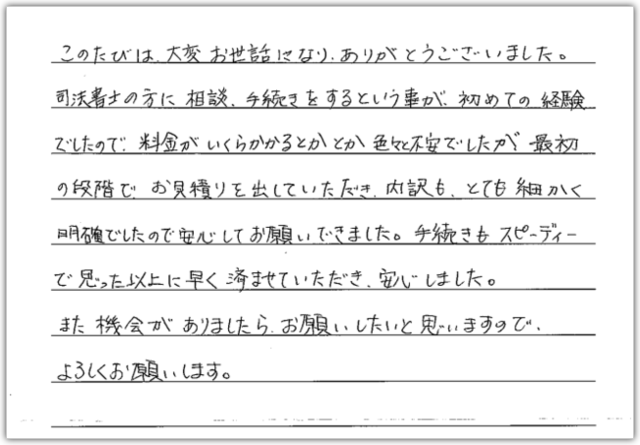 このたびは、大変お世話になり、ありがとうございました。
司法書士の方に相談、手続きをするという事が、初めての経験
でしたので、料金がいくらかかるとかとか色々と不安でしたが、最初
の段階で、お見積りを出していただき、内訳も、とても細かく
明確でしたので安心してお願いできました。手続きもスピーディー
で思った以上に早く済ませていただき、安心しました。
また機会がありましたら、お願いしたいと思いますので、
よろしくお願いします。